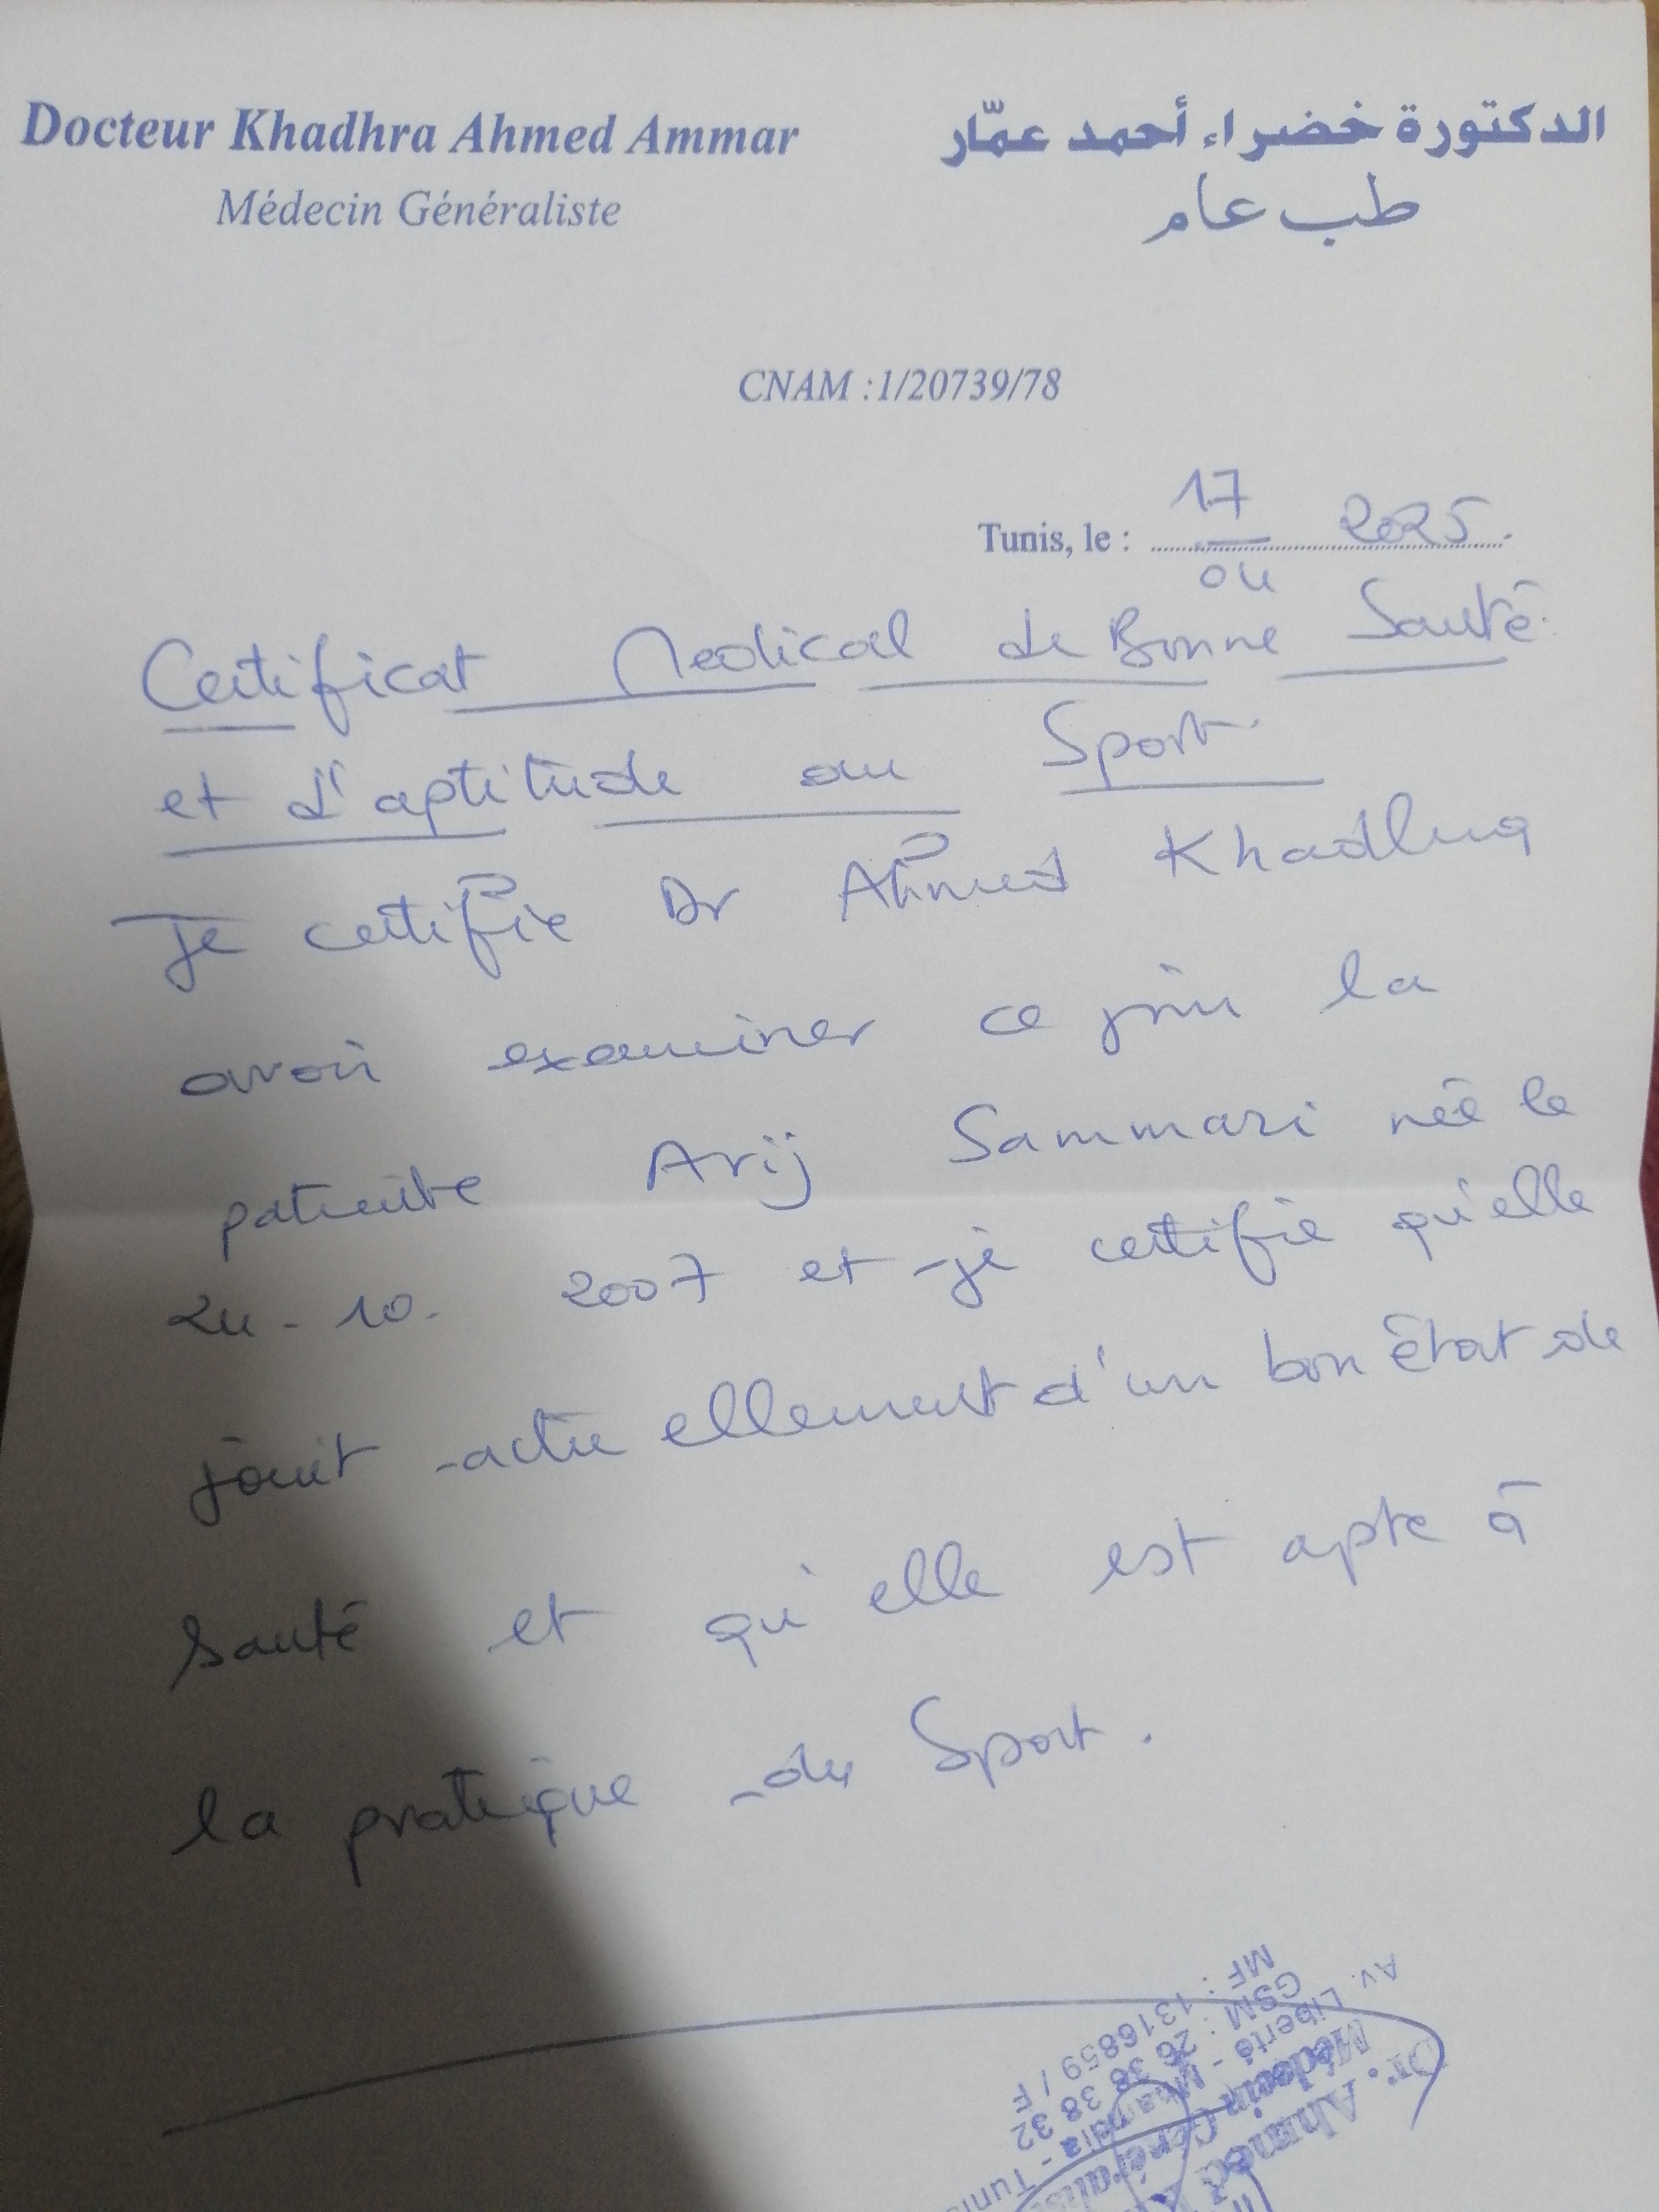 Docteur Khadhra Ahmed Ammar
Médecin Généraliste
الدكتورة خضراء أحمد عمّار
طب عام
CNAM :1/20739/78
Tunis, le : 17/04 2025
Certificat Medical de Bonne Santé
et d'aptitude au Sport
Je certifie Dr Ahmed Khadhra
avoir examiner ce jour la
patiente Arij Sammari née le
24-10-2007 et je certifie qu'elle
jouit actuellement d'un bon état de
santé et qu'elle est apte à
la pratique du Sport.
Dr. Ahmed
Médecin Générali
Av. Liberté - - Tunis
GSM : 26 38 38 32
MF : 1316859 / F